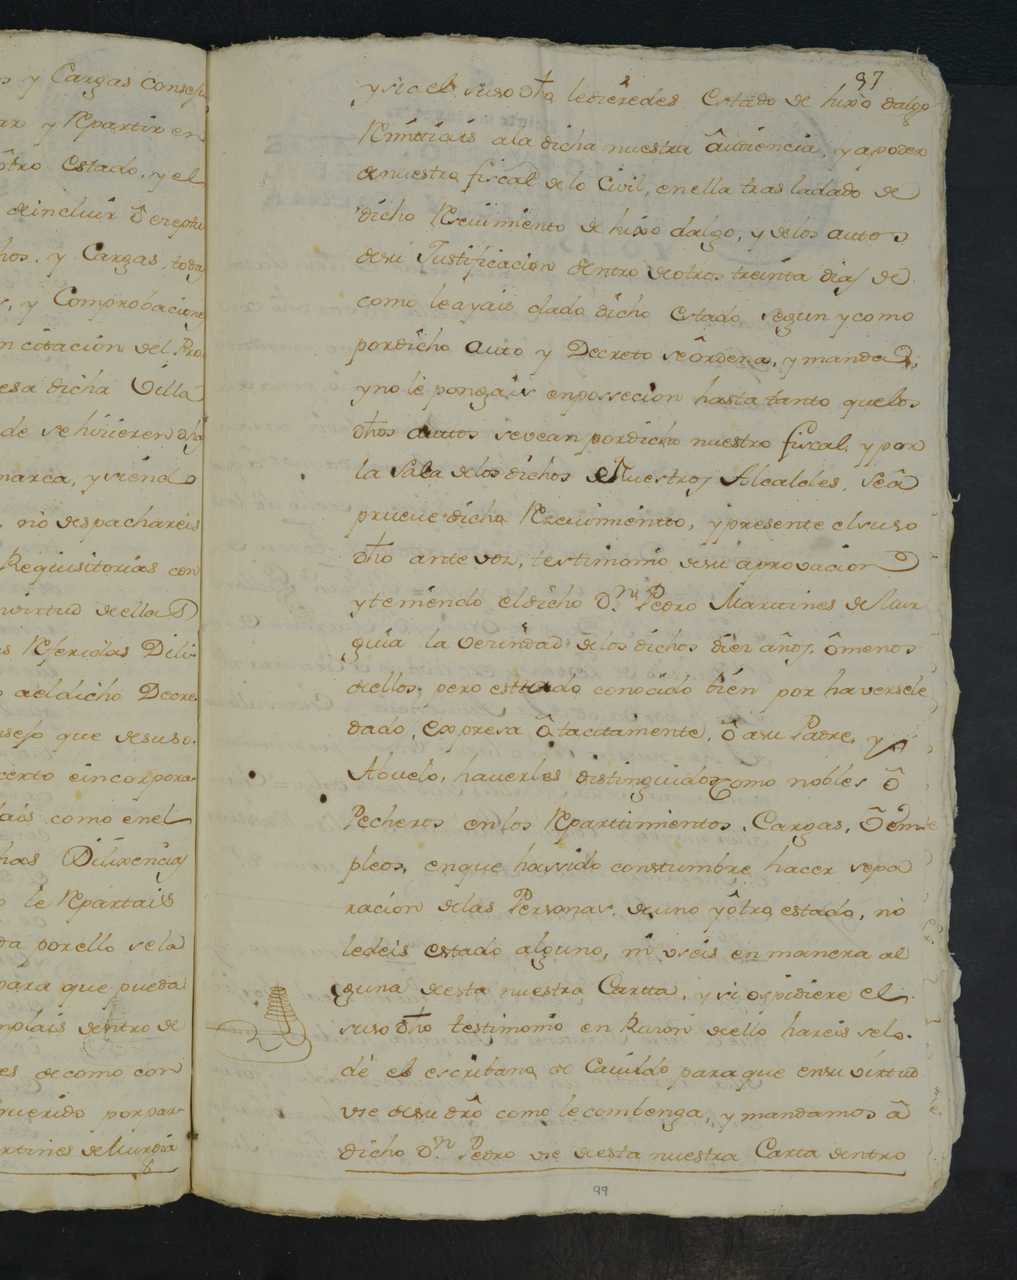 s y Cargas consej
ar y Repartir en
otro estado, y el
de incluir ô exeptu
hos, y Cargas, toda
s, y Comprobacione
n citacion del Pro
esa dicha Villa
de se hicieren dha
marca, y siendo
no despachareis
Requisitorias con
virtud de ella
s Referidas Dili
ael dicho Decre
nsejo que desuso
certo eincorpora
dais como enel
has Dilixencias
le Repartais
da por ello se la
para que pueda
mplais dentro de
es, de como con
querido por par
rtines de Murguia
97
y si el suso dho le diéredes estado de hixo dalgo
Remitiais ala dicha nuestra âudiencia, y a poder
de nuestro fiscal de lo Civil, en ella traslado de
dicho Recivimiento de hixo dalgo, y de los autos
de su Justificacion dentro de otros treinta dias de
como le ayais dado dicho estado, segun y como
por dicho Auto y Decreto se ôrdena, y manda;
y no le pongais en possecion hasta tanto que los
dhos autos se vean por dicho nuestro fiscal, y por
la Sala de los dichos Nuestros Alcaldes, se â
prueve dicho Recivimiento, y presente el suso
dho ante vos, testimonio de su aprovacion
y teniendo el dicho Dn Pedro Martines de Mur
guia la vecindad de los dichos diez años, ô menos
de ellos, pero estado conocido bien por haversele
dado, expresa ô tacitamente, ô a su Padre, y
Abuelo, haverles distinguido como nobles ô
Pecheros en los Reparttimientos, Cargas, ô em
pleos, en que ha sido constumbre hacer sepa
racion de las Personas, de uno y ôtro estado, no
le deis estado alguno, ni useis en manera al
guna de esta nuestra Cartta, y si os pidiere el
suso dho testimonio en Razon de ello hareis se lo
dé el escribano de Cavildo para que en su virtud
use de su dro como le combenga, y mandamos â
dicho Dn Pedro use de esta nuestra Carta dentro
99